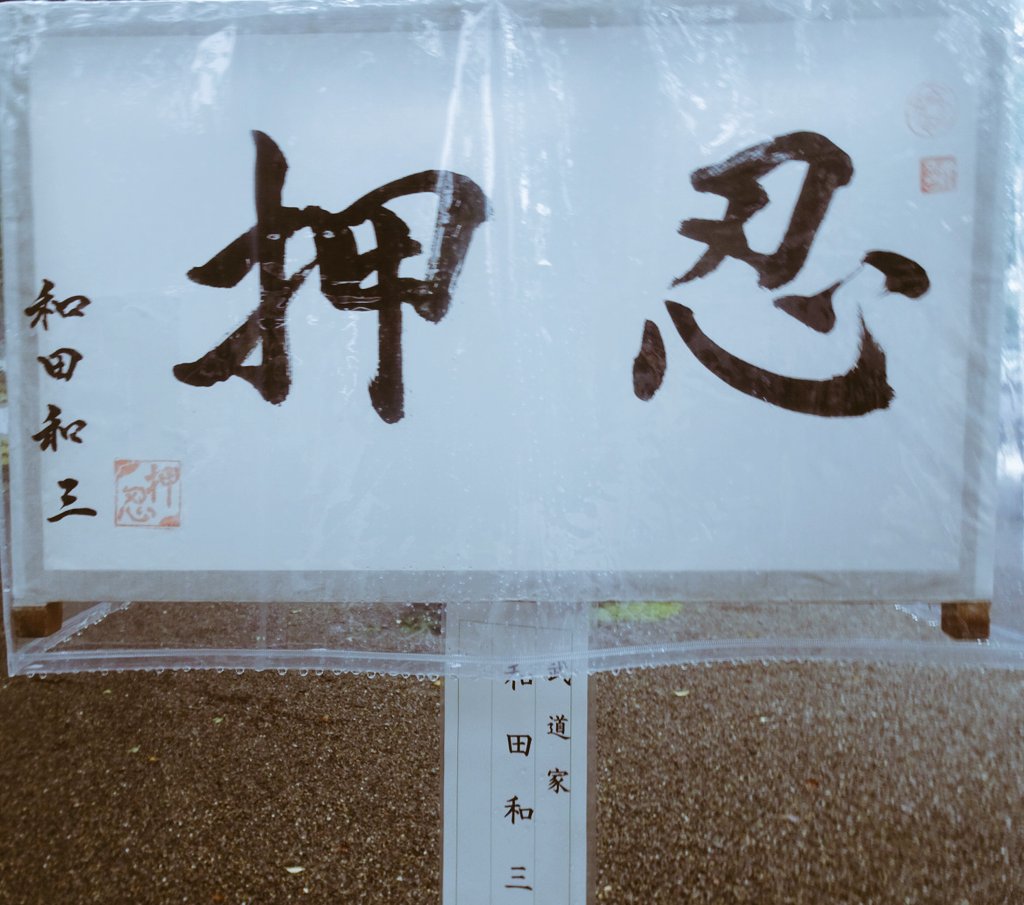 押忍
和田和三
押忍
武道家
和田和三